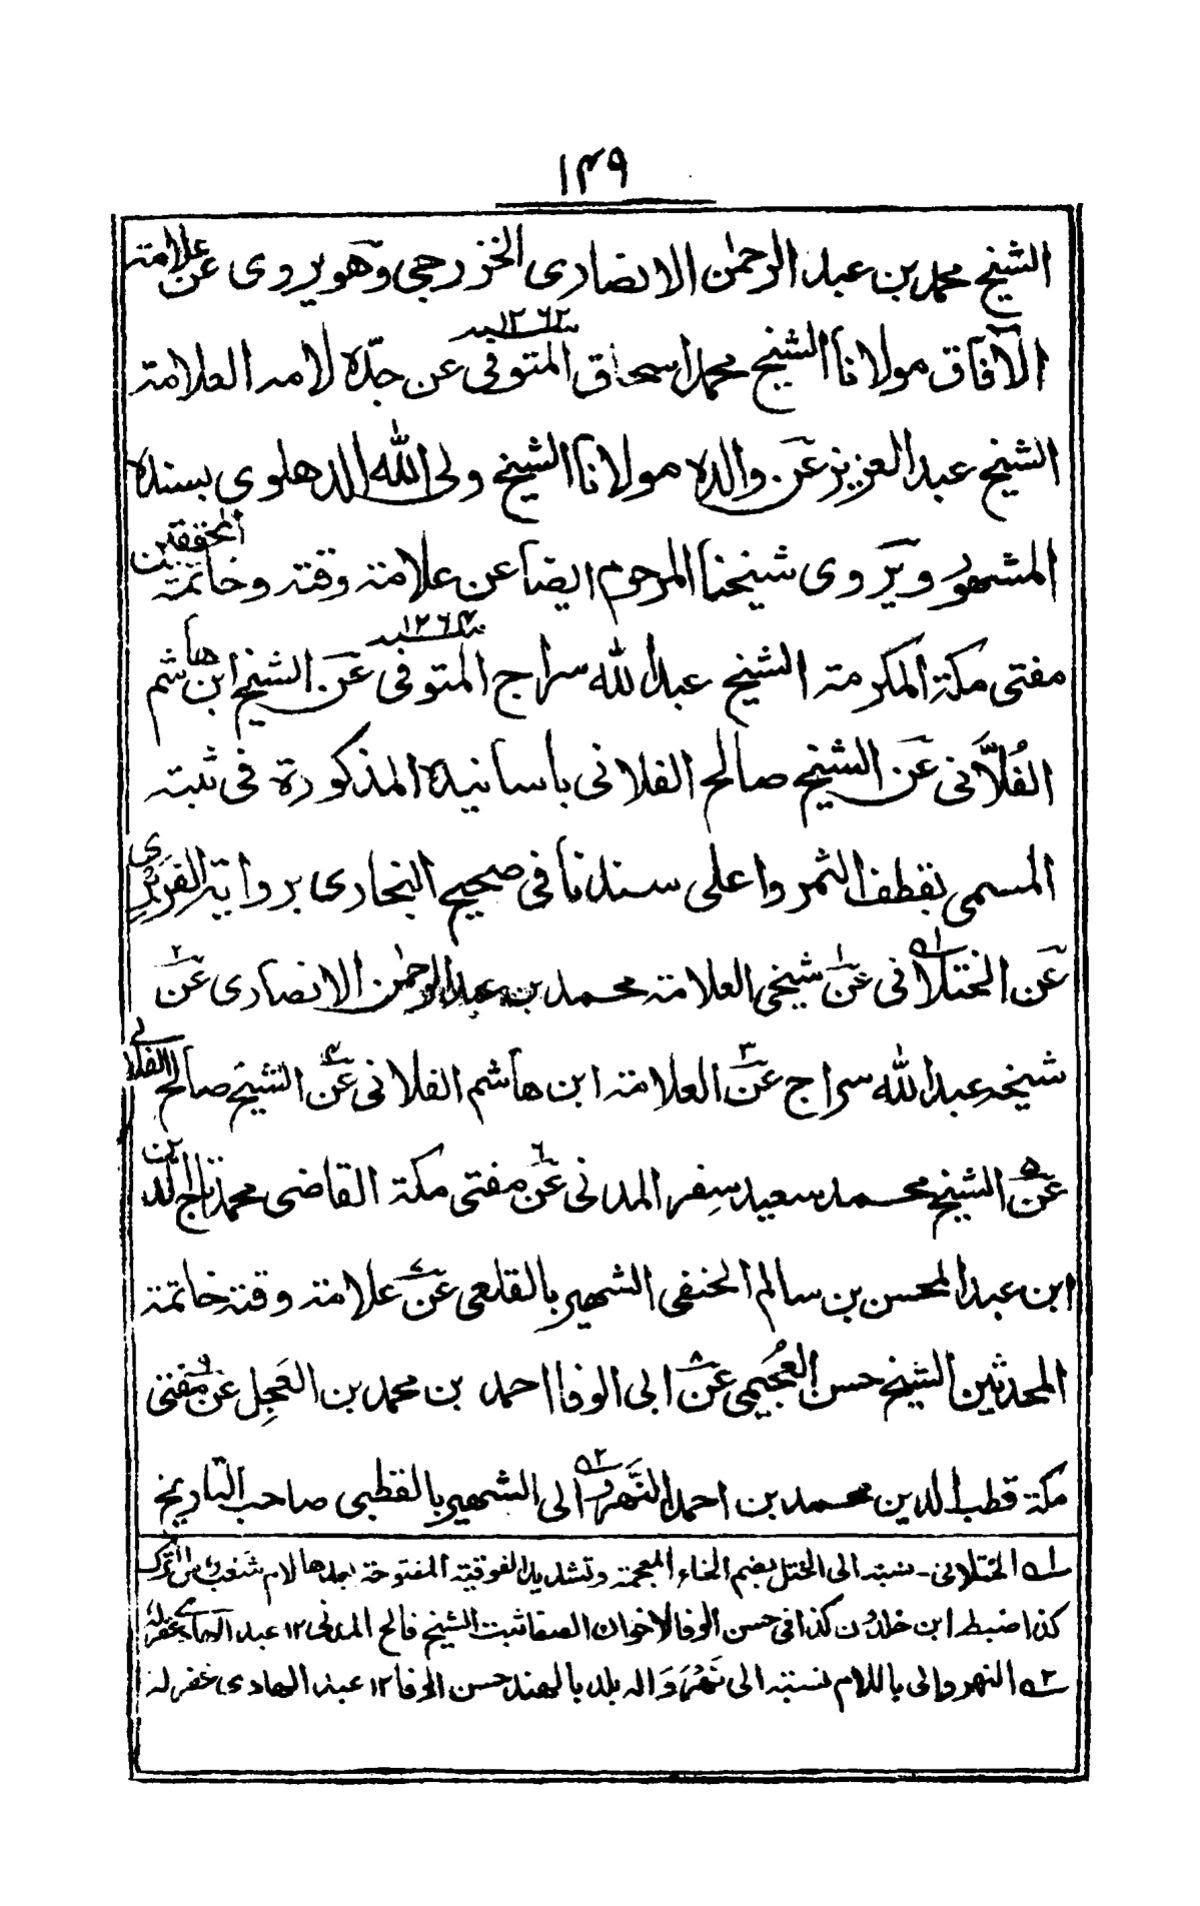 ١٤٩
الشيخ محمد بن عبد الرحمٰن الانصارى الخزرجى وهو يروى عن علامة
الآفاق مولانا الشيخ محمد اسحاق المتوفى سنة ١٢٦٢ عن جدّه لامه العلامة
الشيخ عبد العزيز عن والده مولانا الشيخ ولى الله الدهلوى بسنده
المشهور ويروى شيخنا المرحوم ايضا عن علامة وقته وخاتمة المحققين
مفتى مكة المكرمة الشيخ عبد الله سراج المتوفى سنة ١٢٦٤ عن الشيخ ابن هاشم
الفُلاَّنى عن الشيخ صالح الفلانى باسانيده المذكورة فى ثبته
المسمى بقطف الثمر واعلى سندنا فى صحيح البخارى برواية الفربْرى
عن الختلانى ١ه عن ١ شيخى العلامة محمد بن عبد الرحمٰن الانصارى عن ٢
شيخه عبد الله سراج عن ٣ العلامة ابن هاشم الفلانى عن ٤ الشيخ صالح الفلانى
عن ٥ الشيخ محمد سعيد سِفر المدنى عن ٦ مفتى مكة القاضى محمد تاج الدين
ابن عبد المحسن بن سالم الحنفى الشهير بالقلعى عن ٧ علامة وقته خاتمة
المحدثين الشيخ حسن العُجَيمى عن ٨ ابى الوفا احمد بن محمد بن العَجِل عن ٩ مفتى
مكة قطب الدين محمد بن احمد النَّهْروالى ٢ه الشهير بالقطبى صاحب التاريخ
١ه الختلانى - نسبة الى الختل بضم الخاء المعجمة وتشديد الفوقية المفتوحة بعدها لام شعب من الترك
كذا ضبط ابن خلدون كذا فى حسن الوفا لاخوان الصفا ثبت الشيخ فالح المدنى ١٢ عبد الهادى غفر له
٢ه النهروالى باللام نسبة الى نَهْرَوَالة بلد بالهند حسن الوفا ١٢ عبد الهادى غفر له